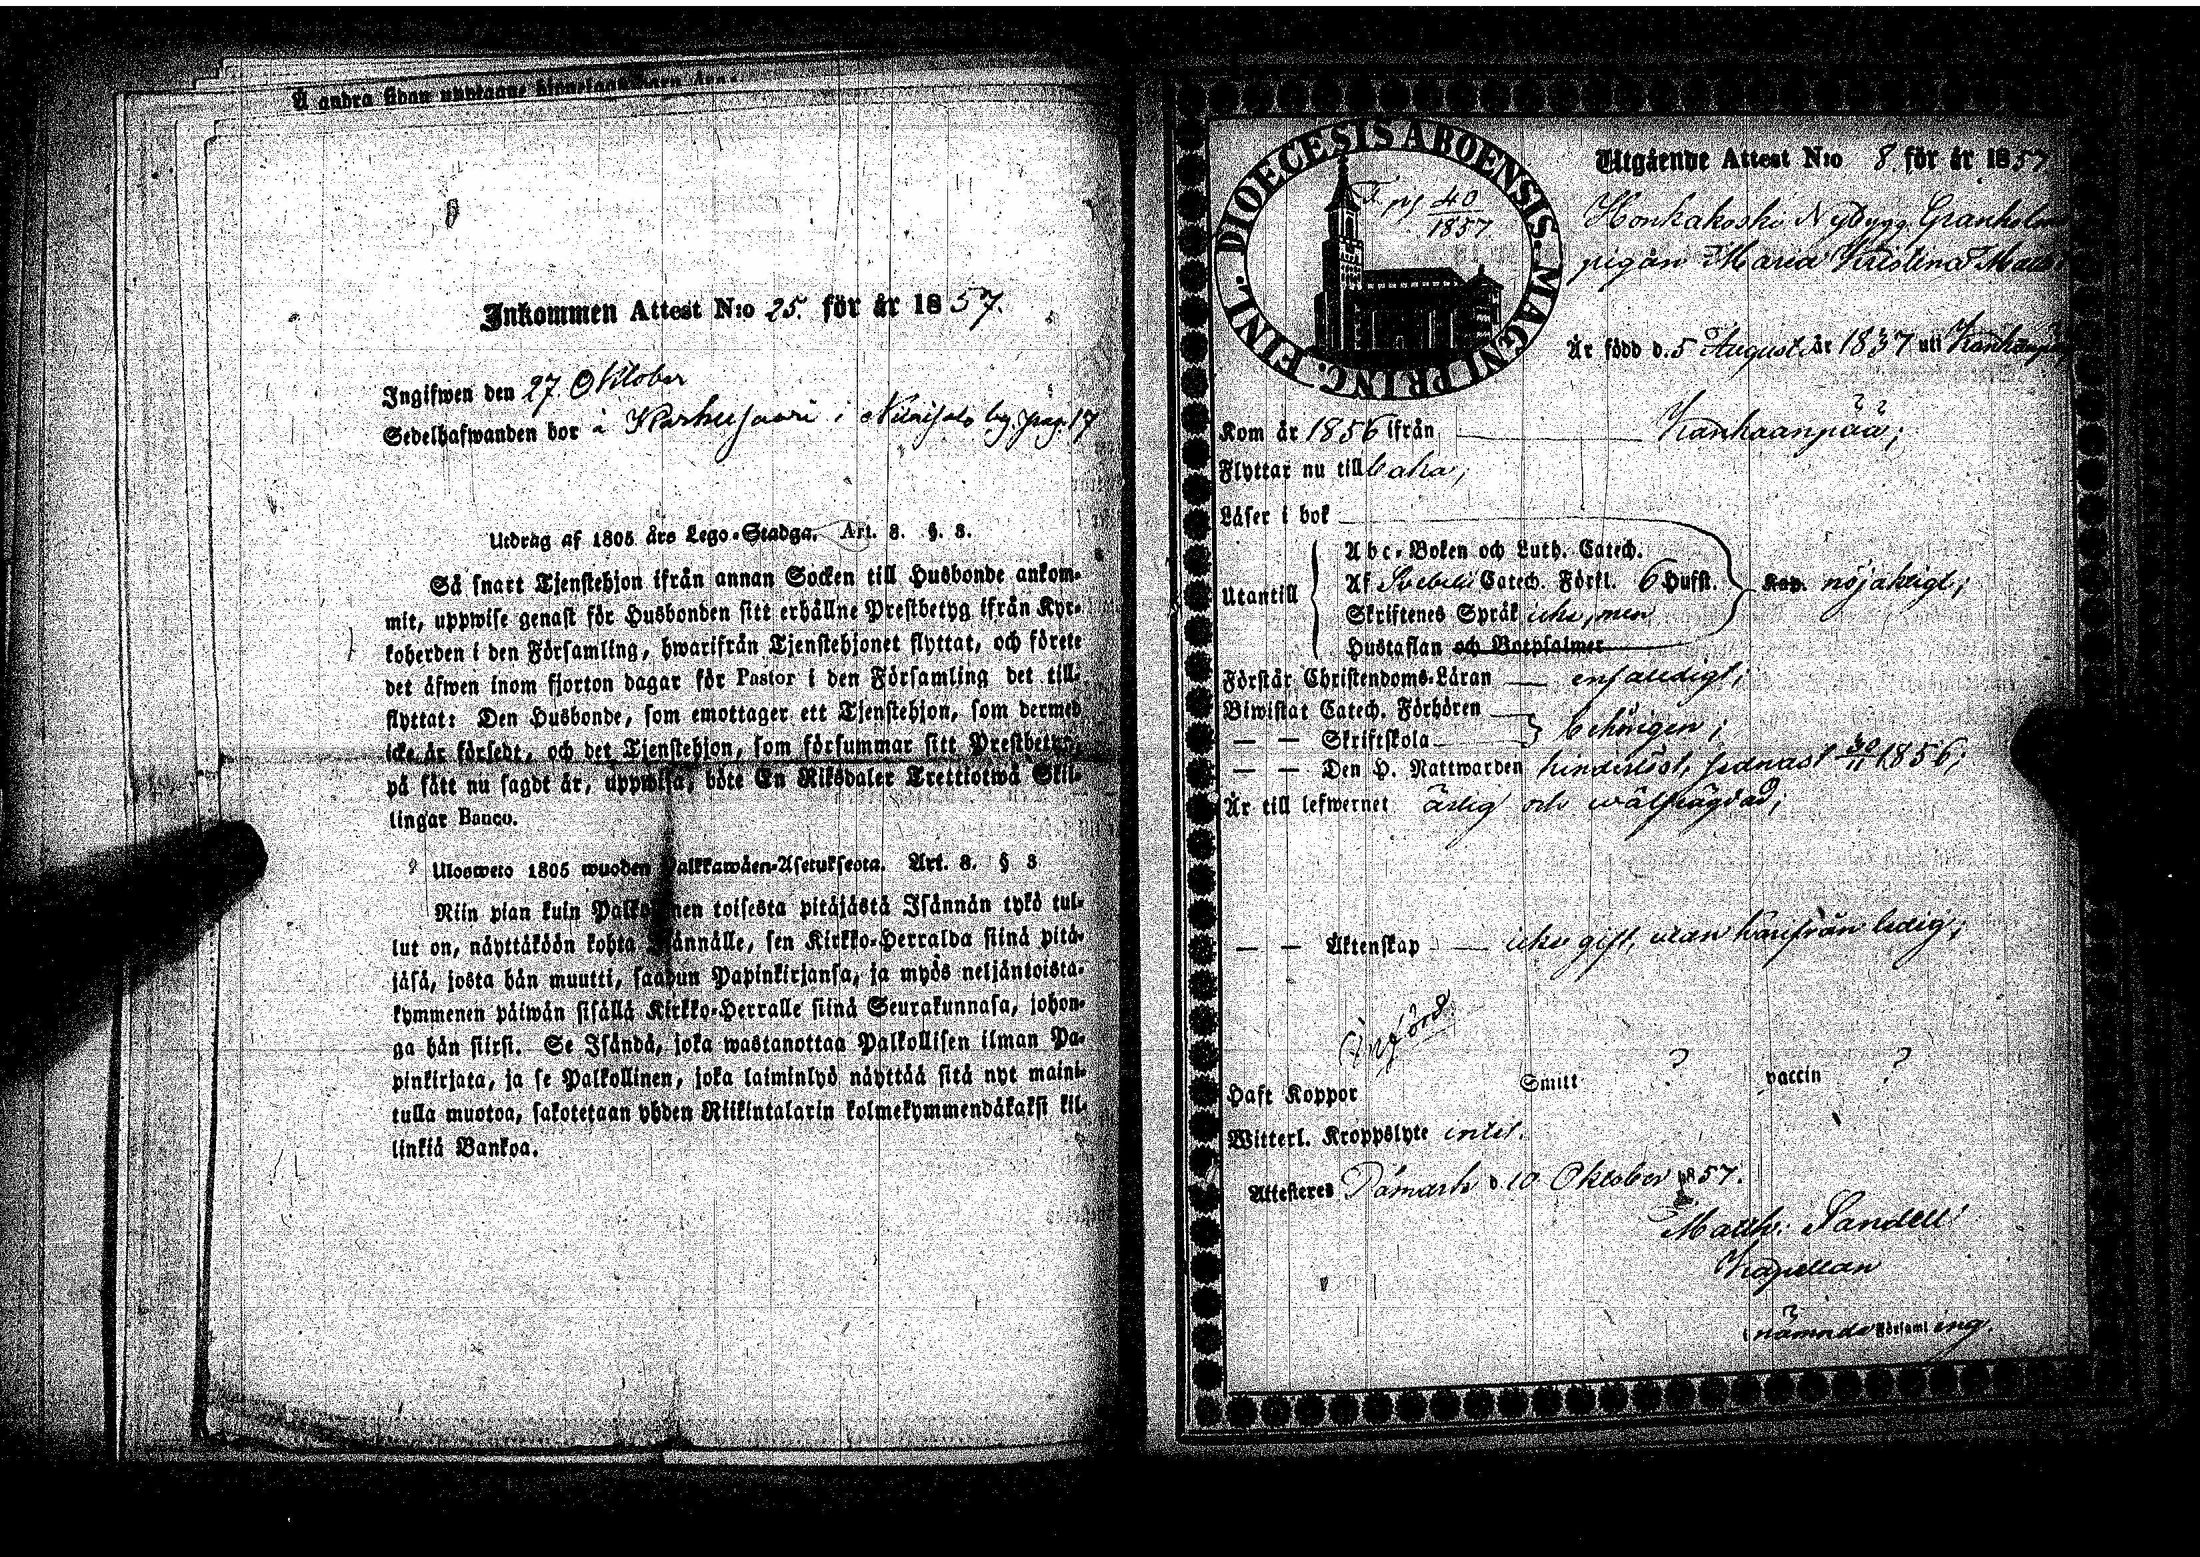 Å andra sidan
Inkommen Attest N:o 25. för år 1857.
Ingifwen den 27 Oktober
Sedelhafwanden bor å Karhusaari i by pag. 17
Utdrag af 1805 års Lego-Stadga. Art. 8. §. 3.
Så snart Tjenstehjon ifrån annan Socken till Husbonde ankom-
mit, uppwise genast för Husbonden sitt erhållne Prestbetyg ifrån Kyr-
koherden i den Församling, hwarifrån Tjenstehjonet flyttat, och förete
det äfwen inom fjorton dagar för Pastor i den Församling det till-
flyttat: Den Husbonde, som emottager ett Tjenstehjon, som dermed
icke är försedt, och det Tjenstehjon, som försummar sitt Prestbetyg,
på sätt nu sagdt är, uppwisa, böte En Riksdaler Trettiotwå Skil-
lingar Banco.
Ulosweto 1805 wuoden Palkkawäen-Asetuksesta. Art. 8. § 3
Niin pian kuin Palkollinen toisesta pitäjästä Isännän tykö tul-
lut on, näyttäköön kohta Isännälle, sen Kirkko-Herralda siinä pitä-
jäsä, josta hän muutti, saadun Papinkirjansa, ja myös neljäntoista-
kymmenen päiwän sisällä Kirkko-Herralle siinä Seurakunnasa, johon-
ga hän siirsi. Se Isändä, joka wastanottaa Palkollisen ilman Pa-
pinkirjata, ja se Palkollinen, joka laiminlyö näyttää sitä nyt maini-
tulla muotoa, sakotetaan yhden Riikintalarin kolmekymmendäkaksi kil-
linkiä Bankoa.
DIOECESIS ABOENSIS. MAGNI PRINC. FINL.
pg 40
1857
Utgående Attest N:o 8. för år 1857
Honkakoski Nybygg Granholm
pigan Maria Kristina Matts
Är född d. 5 Augusti år 1837 uti Kankaanpää
Kom år 1856 ifrån Kankaanpää;
Flyttar nu tillbaka;
Läser i bok
Utantill
Abc-Boken och Luth. Catech.
Af Svebelii Catech. Förkl. 6 Hufst.
Skriftenes Språk icke, men
Hustaflan och Botpsalmer
Kap. nöjaktigt;
Förstår Christendoms-Läran enfaldigt;
Biwistat Catech. Förhören
— — Skriftskola behörigen;
— — Den H. Nattwarden hinderlöst, sednast 30/11 1856;
Är till lefwernet ärlig och wälfrägdad;
— — Äktenskap icke gift, utan härifrån ledig;
Införd
Haft Koppor Smitt ? vaccin ?
Witterl. Kroppslyte intet.
Attesteras Påmark d. 10 Oktober 1857.
Matth. Sandell
Kapellan
i nämnde Församling.